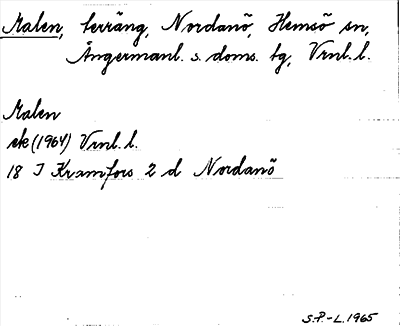 Malen, terräng, Nordanö, Hemsö sn,
Ångermanl. s. doms. tg, Vrnl. l.
Malen
ek (1964) Vrnl. l.
18 I Kramfors 2 d Nordanö
S.P.-L. 1965